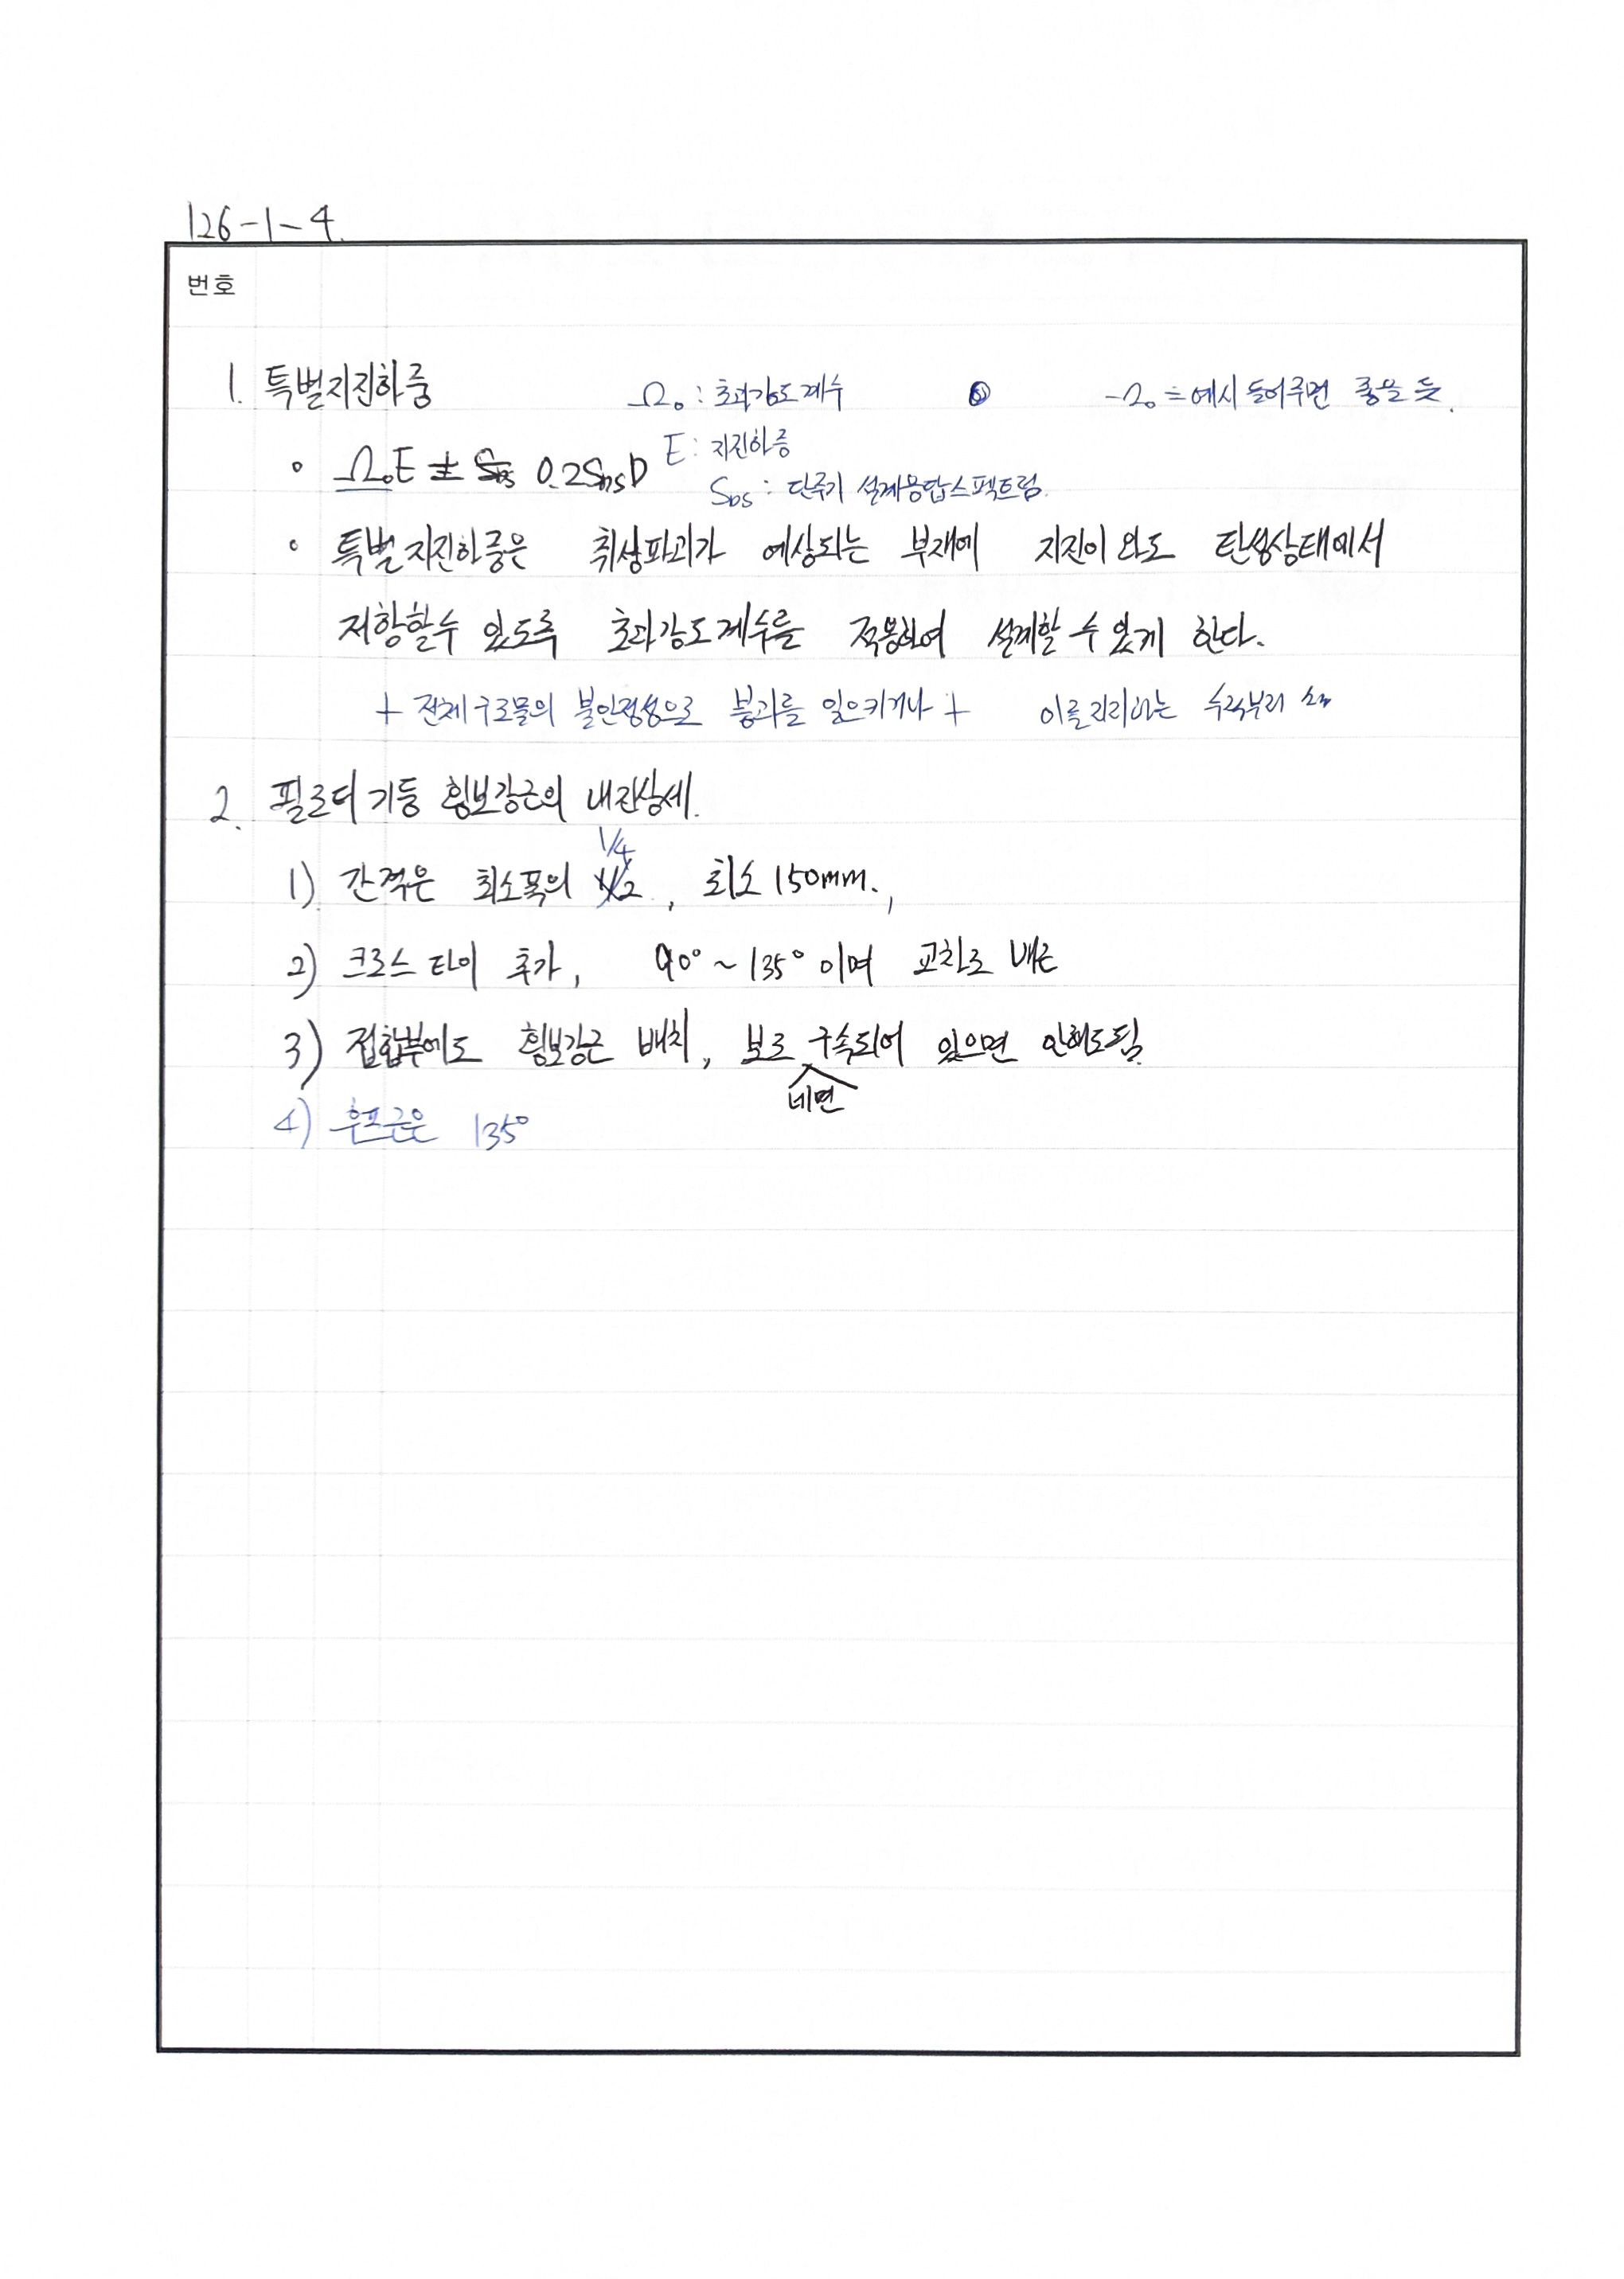 126-1-4.
번호
1. 특별지진하중 Ω₀ : 초과강도계수 Ω₀ = 예시 들어주면 좋을 듯.
◦ Ω₀E ± 0.2S_DS D E : 지진하중
S_DS : 단주기 설계응답스펙트럼.
◦ 특별지진하중은 취성파괴가 예상되는 부재에 지진이 와도 탄성상태에서
저항할수 있도록 초과강도계수를 적용하여 설계할 수 있게 한다.
+ 전체구조물의 불안정성으로 붕괴를 일으키거나 + 이를 지지하는
2. 필로티 기둥 횡보강근의 내진상세.
1/4
1) 간격은 최소폭의 1/2 , 최소 150mm.,
2) 크로스 타이 추가, 90° ~ 135° 이며 교차로 배근
3) 접합부에도 횡보강근 배치, 보로 구속되어 있으면 안해도됨.
네면
4) 후프근은 135°